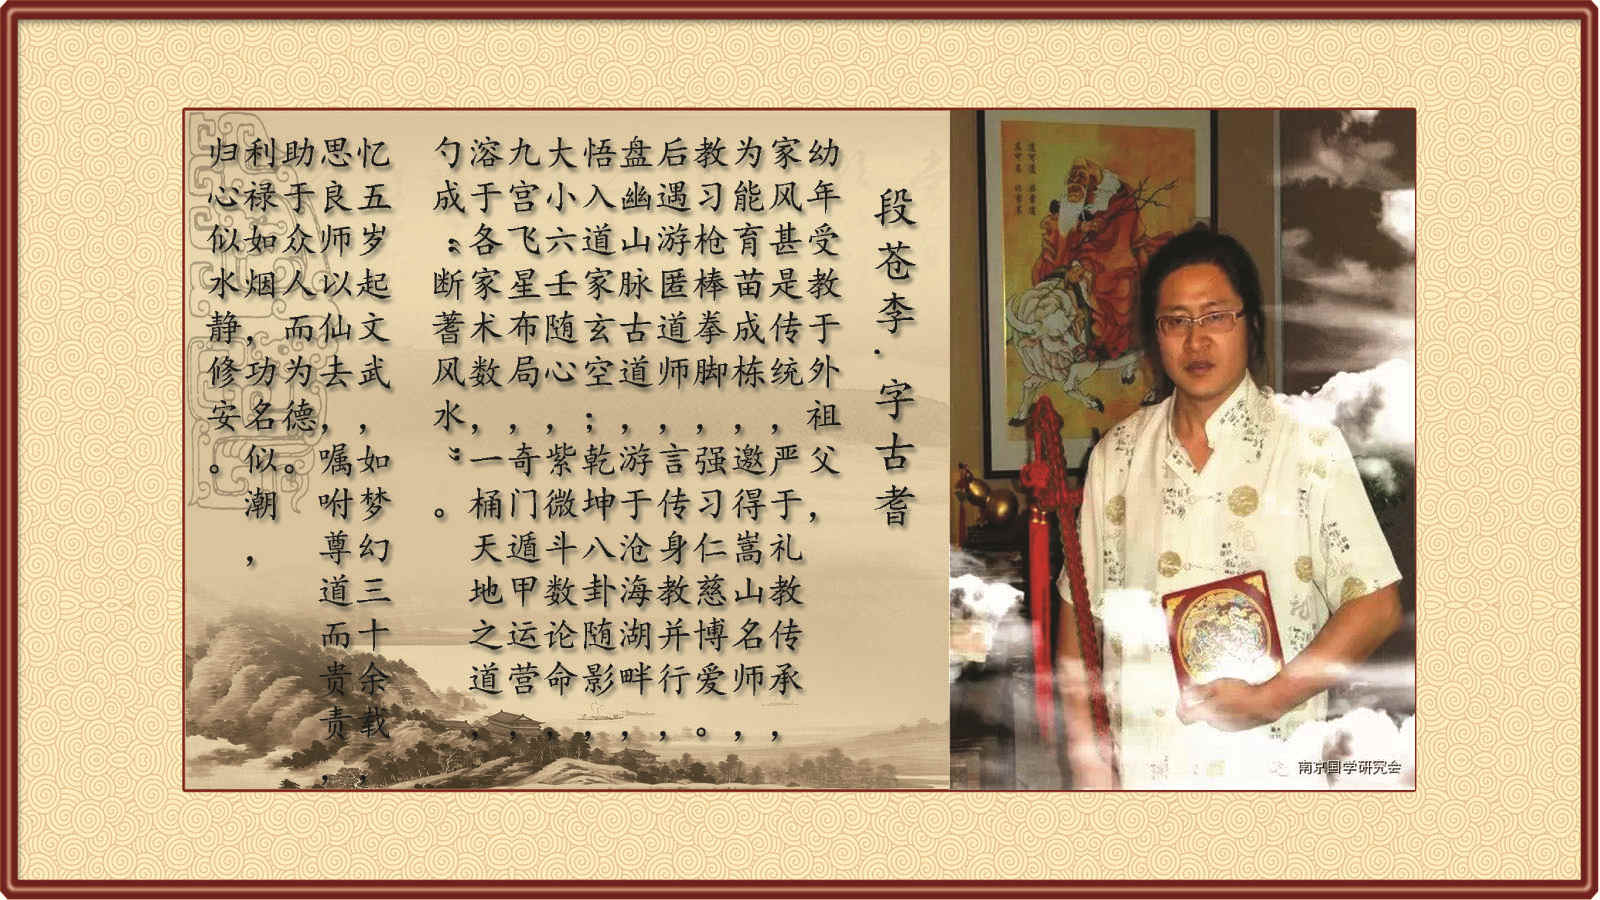 段苍李·字古耆
幼年受教于外祖父，
家风甚是传统，严于礼教传承，
为能育苗成栋，邀得嵩山名师，
教习枪棒拳脚，强习仁慈博爱。
后遇游匿道师，言传身教并行，
盘幽山脉古道，游于沧海湖畔，
悟入道家玄空；乾坤八卦随影，
大小六壬随心，紫微斗数论命，
九宫飞星布局，奇门遁甲运营，
溶于各家术数，一桶天地之道，
勺成“断蓍风水”。
忆五岁起文武，如梦幻三十余载，
思良师以仙去，嘱咐尊道而贵责，
助于众人而为德。
利禄如烟，功名似潮，
归心似水静修安。
南京国学研究会